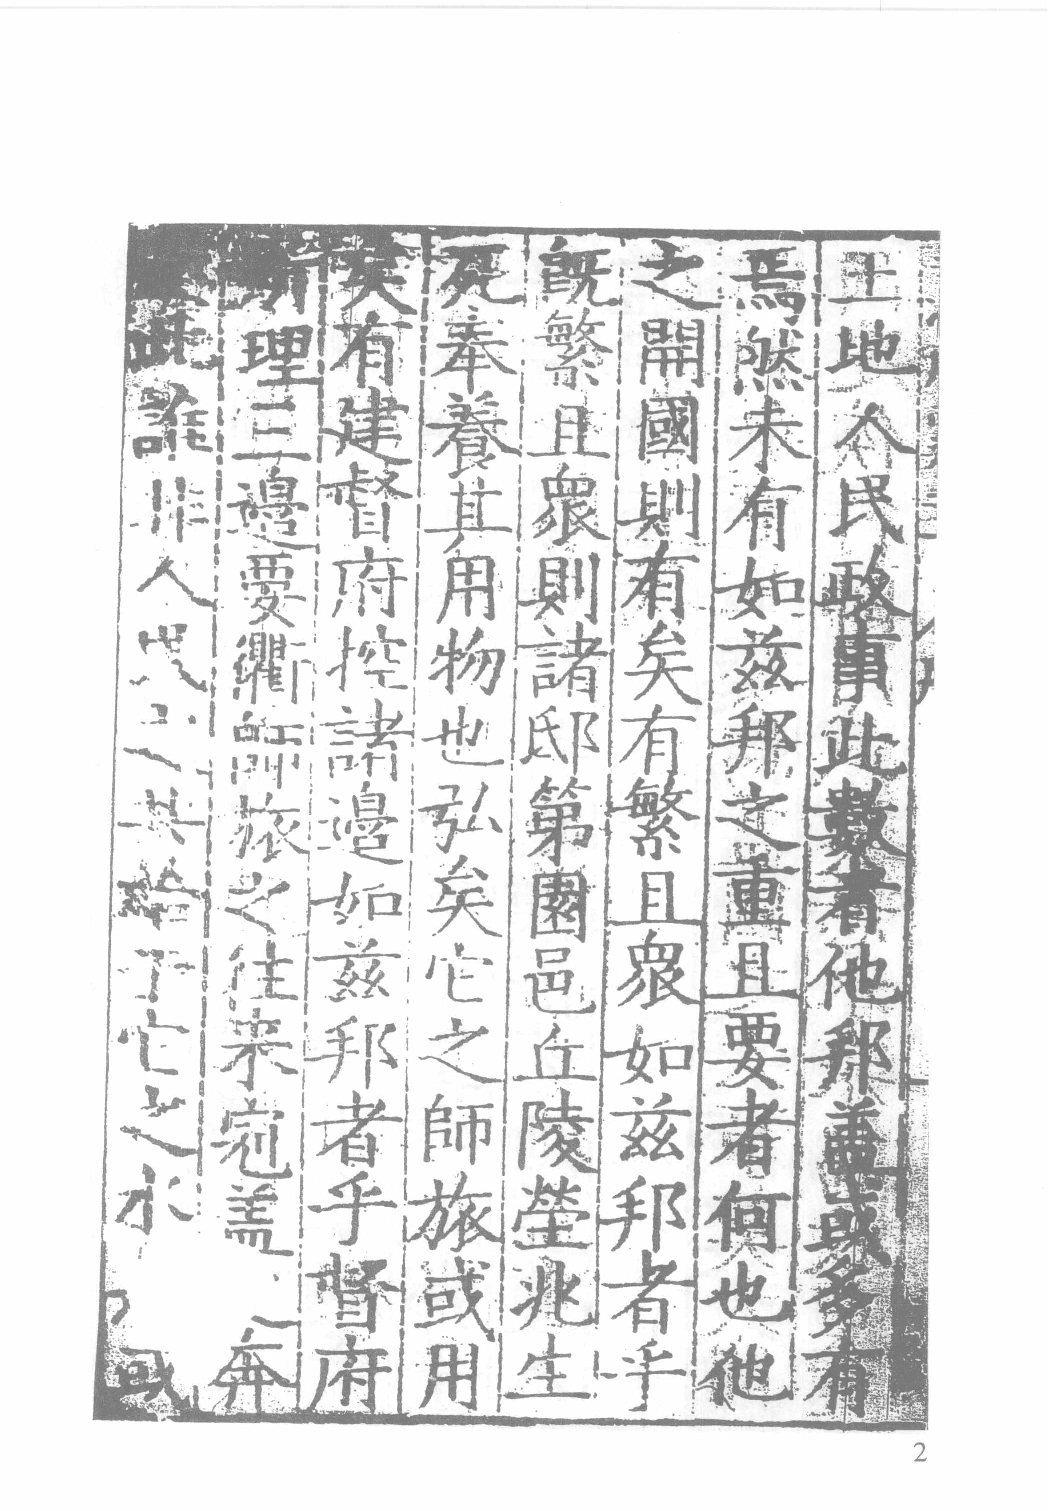 土地人民政事此數者他邦盖或多有
焉然未有如兹邦之重且要者何也他
之開國則有矣有繁且衆如兹邦者乎
既繁且衆則諸邸第園邑丘陵塋兆生
死奉養其用物也弘矣它之師旅或用
矣有建督府控諸邊如兹邦者乎督府
所理三邊要衢師旅之往来宼盖 奔
誰非人 之共給于它之水 或
2